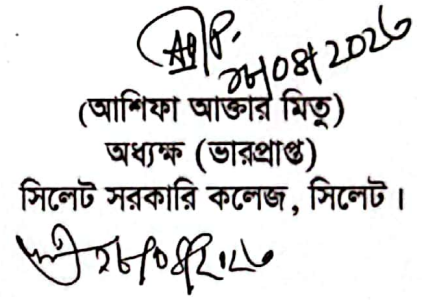 ২৮/০৪/২০২৬
(আশিফা আক্তার মিতু)
অধ্যক্ষ (ভারপ্রাপ্ত)
সিলেট সরকারি কলেজ, সিলেট।
২৮/০৪/২০২৬